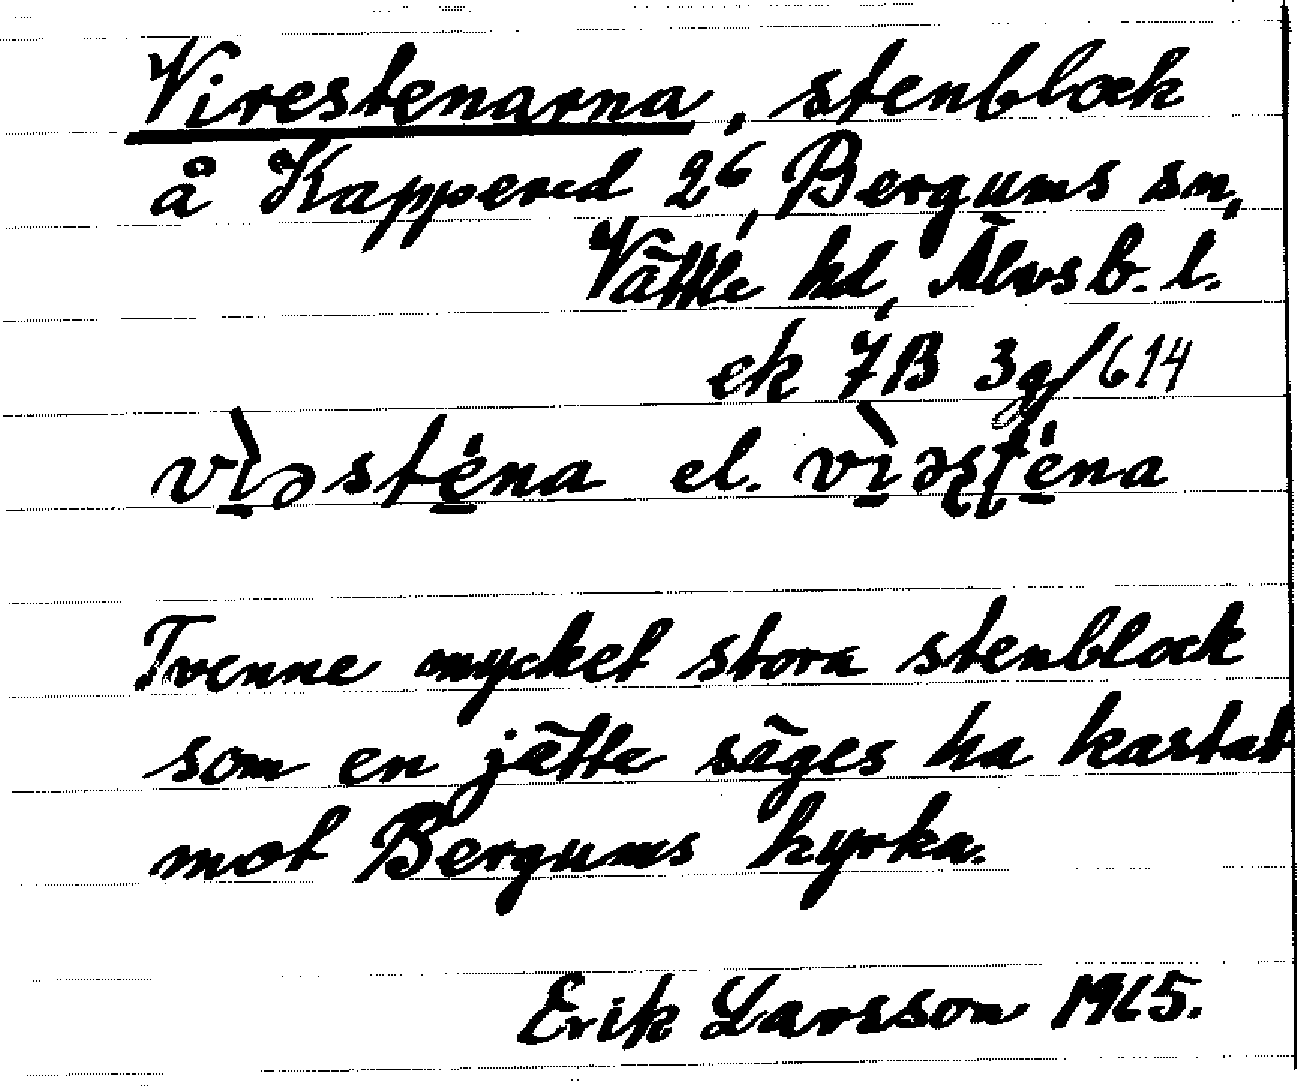 Virestenarna, stenblock
å Kappered 2⁶, Bergums sn,
Vättle hd, Älvsb. l.
ek 7B 3g/614
vì̱əsté̱na el. vì̱əʂʈé̱na
Tvenne mycket stora stenblock
som en jätte säges ha kastat
mot Bergums kyrka.
Erik Larsson 1965.